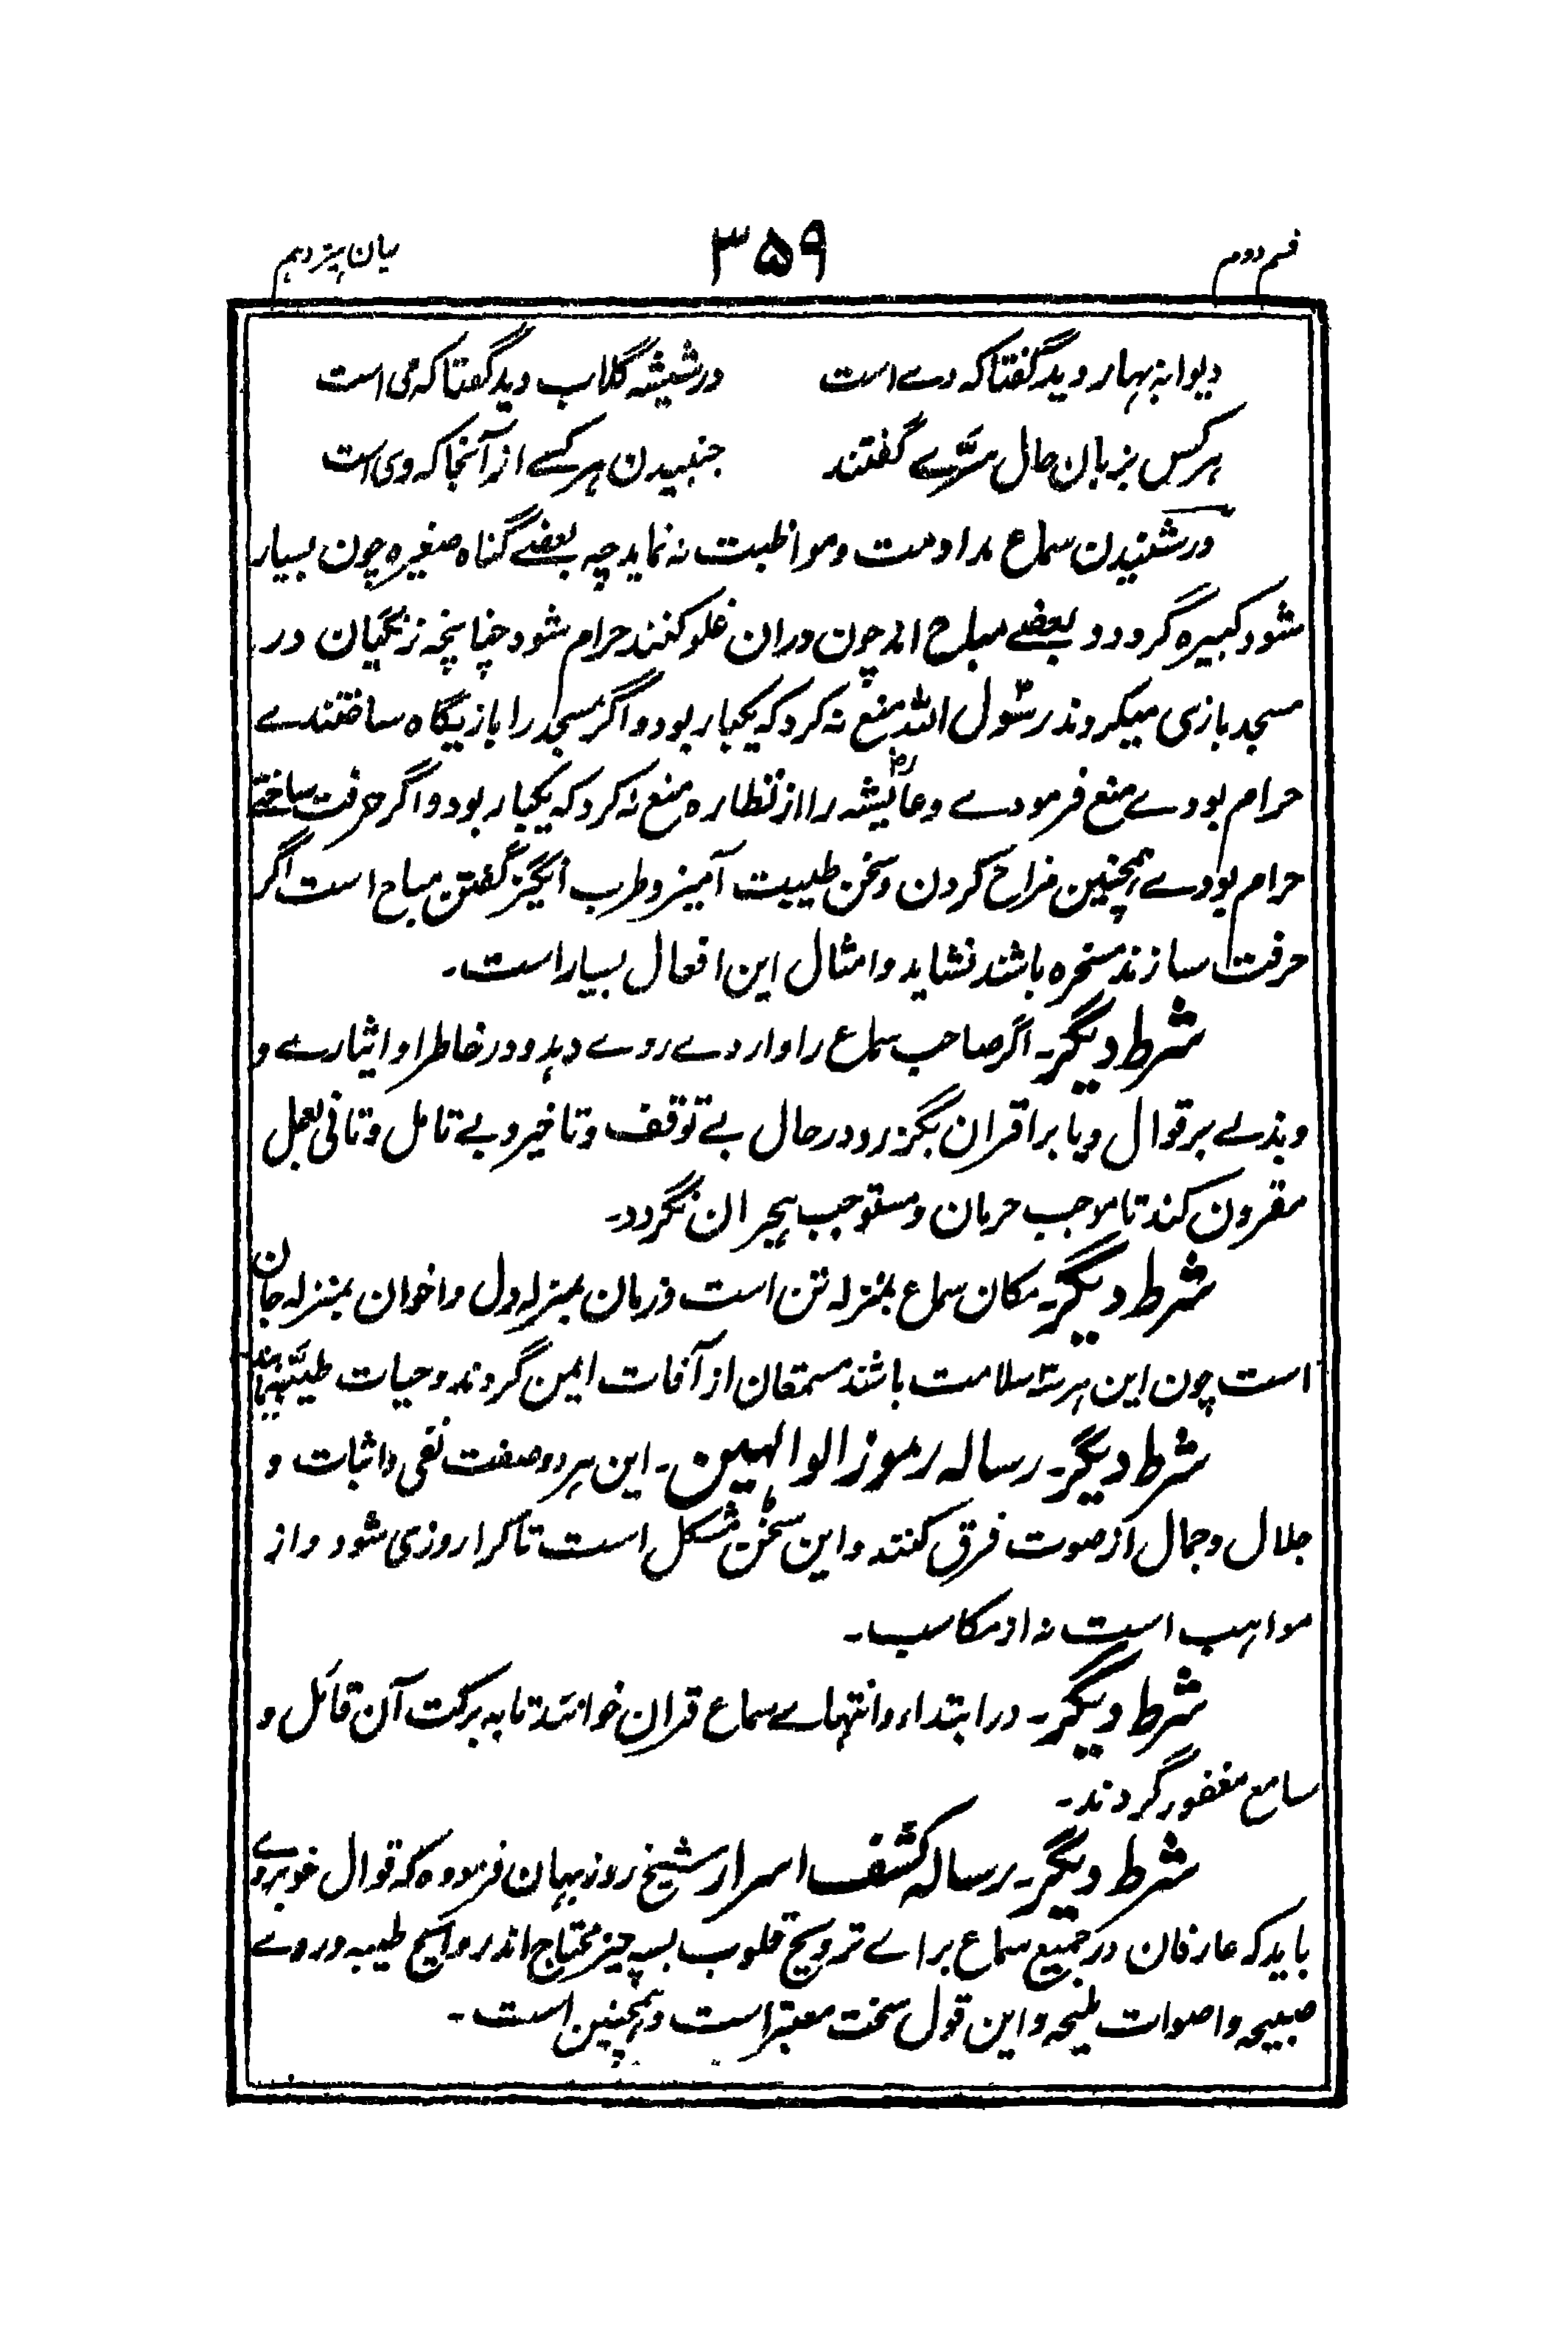 قسم دوم
۳۵۹
بیان پنزدہم
دیوانہ بہار دید گفتا کہ دے است در شیشہ گلاب دید گفتا کہ می است
ہر کس بزبان حال سرّے گفتند جنبیدن ہر کسے از آنجا کہ وی است
در شنیدن سماع مداومت و مواظبت نہ نماید چہ بعضے گناہ صغیرہ چون بسیار
شود کبیرہ گردد و بعضے مباح اند چون دران غلو کنند حرام شود چنانچہ زنگیان در
مسجد بازی میکردند رسول اللہ منع نہ کرد کہ یکبار بود و اگر مسجد را بازیگاہ ساختندے
حرام بودے منع فرمودے و عائیشہ را از نظارہ منع نہ کرد کہ یکبار بود و اگر حرفت ساختے
حرام بودے ہمچنین مزاح کردن و سخن طیبت آمیز و طرب انگیز گفتن مباح است اگر
حرفت سازند مسخرہ باشند نشاید و امثال این افعال بسیار است۔
شرط دیگر۔ اگر صاحب سماع را واردے روے دہد و در خاطر او ایثارے و
و بذلے بر قوال و یا بر اقران بگزرد در حال بے توقف و تاخیر و بے تامل و تانی بعمل
مقرون کند تا موجب حرمان و مستوجب ہجران نگردد۔
شرط دیگر۔ مکان سماع بمنزلہ تن است و زمان بمنزلہ دل و اخوان بمنزلہ جان
است چون این ہرسہ سلامت باشند مستمعان از آفات ایمن گردند و حیات طیبہ یابند
شرط دیگر۔ رسالہ رموز الوالہین۔ این ہر دو صفت نفی و اثبات و
جلال و جمال از صوت فرق کنند و این سخن مشکل است تا کرا روزی شود و از
مواہب است نہ از مکاسب۔
شرط دیگر۔ در ابتداء و انتہاے سماع قران خوانند تا بہ برکت آن قائل و
سامع مغفور گردند۔
شرط دیگر۔ رسالہ کشف اسرار شیخ روزبہان فرمودہ کہ قوال خوبروے
باید کہ عارفان در جمیع سماع براے ترویح قلوب بسہ چیز محتاج اند روایح طیبہ و روے
صبیحہ و اصوات ملیحہ و این قول سخت معتبر است و ہمچنین است۔